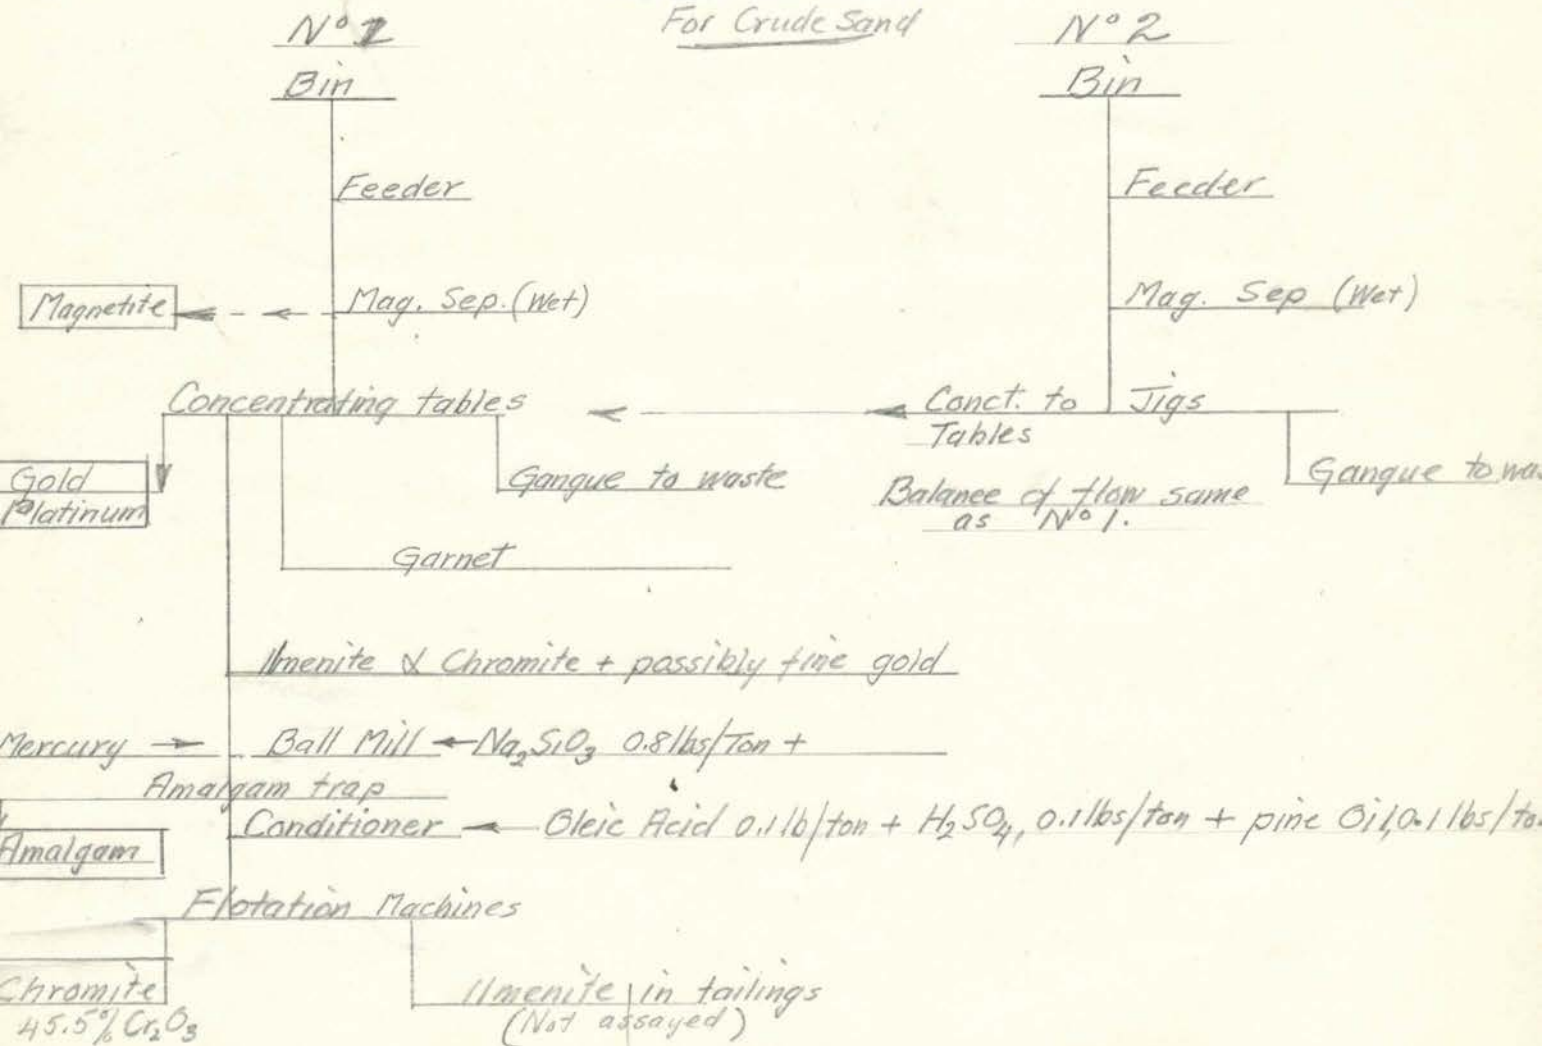 For Crude Sand
Nº 1
Bin
Feeder
Mag. Sep. (Wet)
Magnetite
Concentrating tables
Gold
Platinum
Gangue to waste
Garnet
Ilmenite & Chromite + possibly fine gold
Mercury → Ball Mill ← Na₂SiO₃ 0.8 lbs/Ton +
Amalgam trap
Conditioner ← Oleic Acid 0.1 lb/ton + H₂SO₄, 0.1 lbs/ton + pine Oil, 0.1 lbs/to
Amalgam
Flotation Machines
Chromite
45.5% Cr₂O₃
Ilmenite in tailings
(Not assayed)
Nº 2
Bin
Feeder
Mag. Sep (Wet)
Jigs
Conct. to
Tables
Gangue to was
Balance of flow same
as Nº 1.